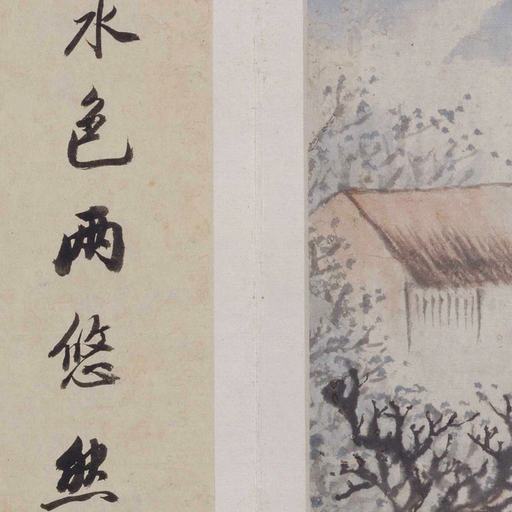 水色两悠然